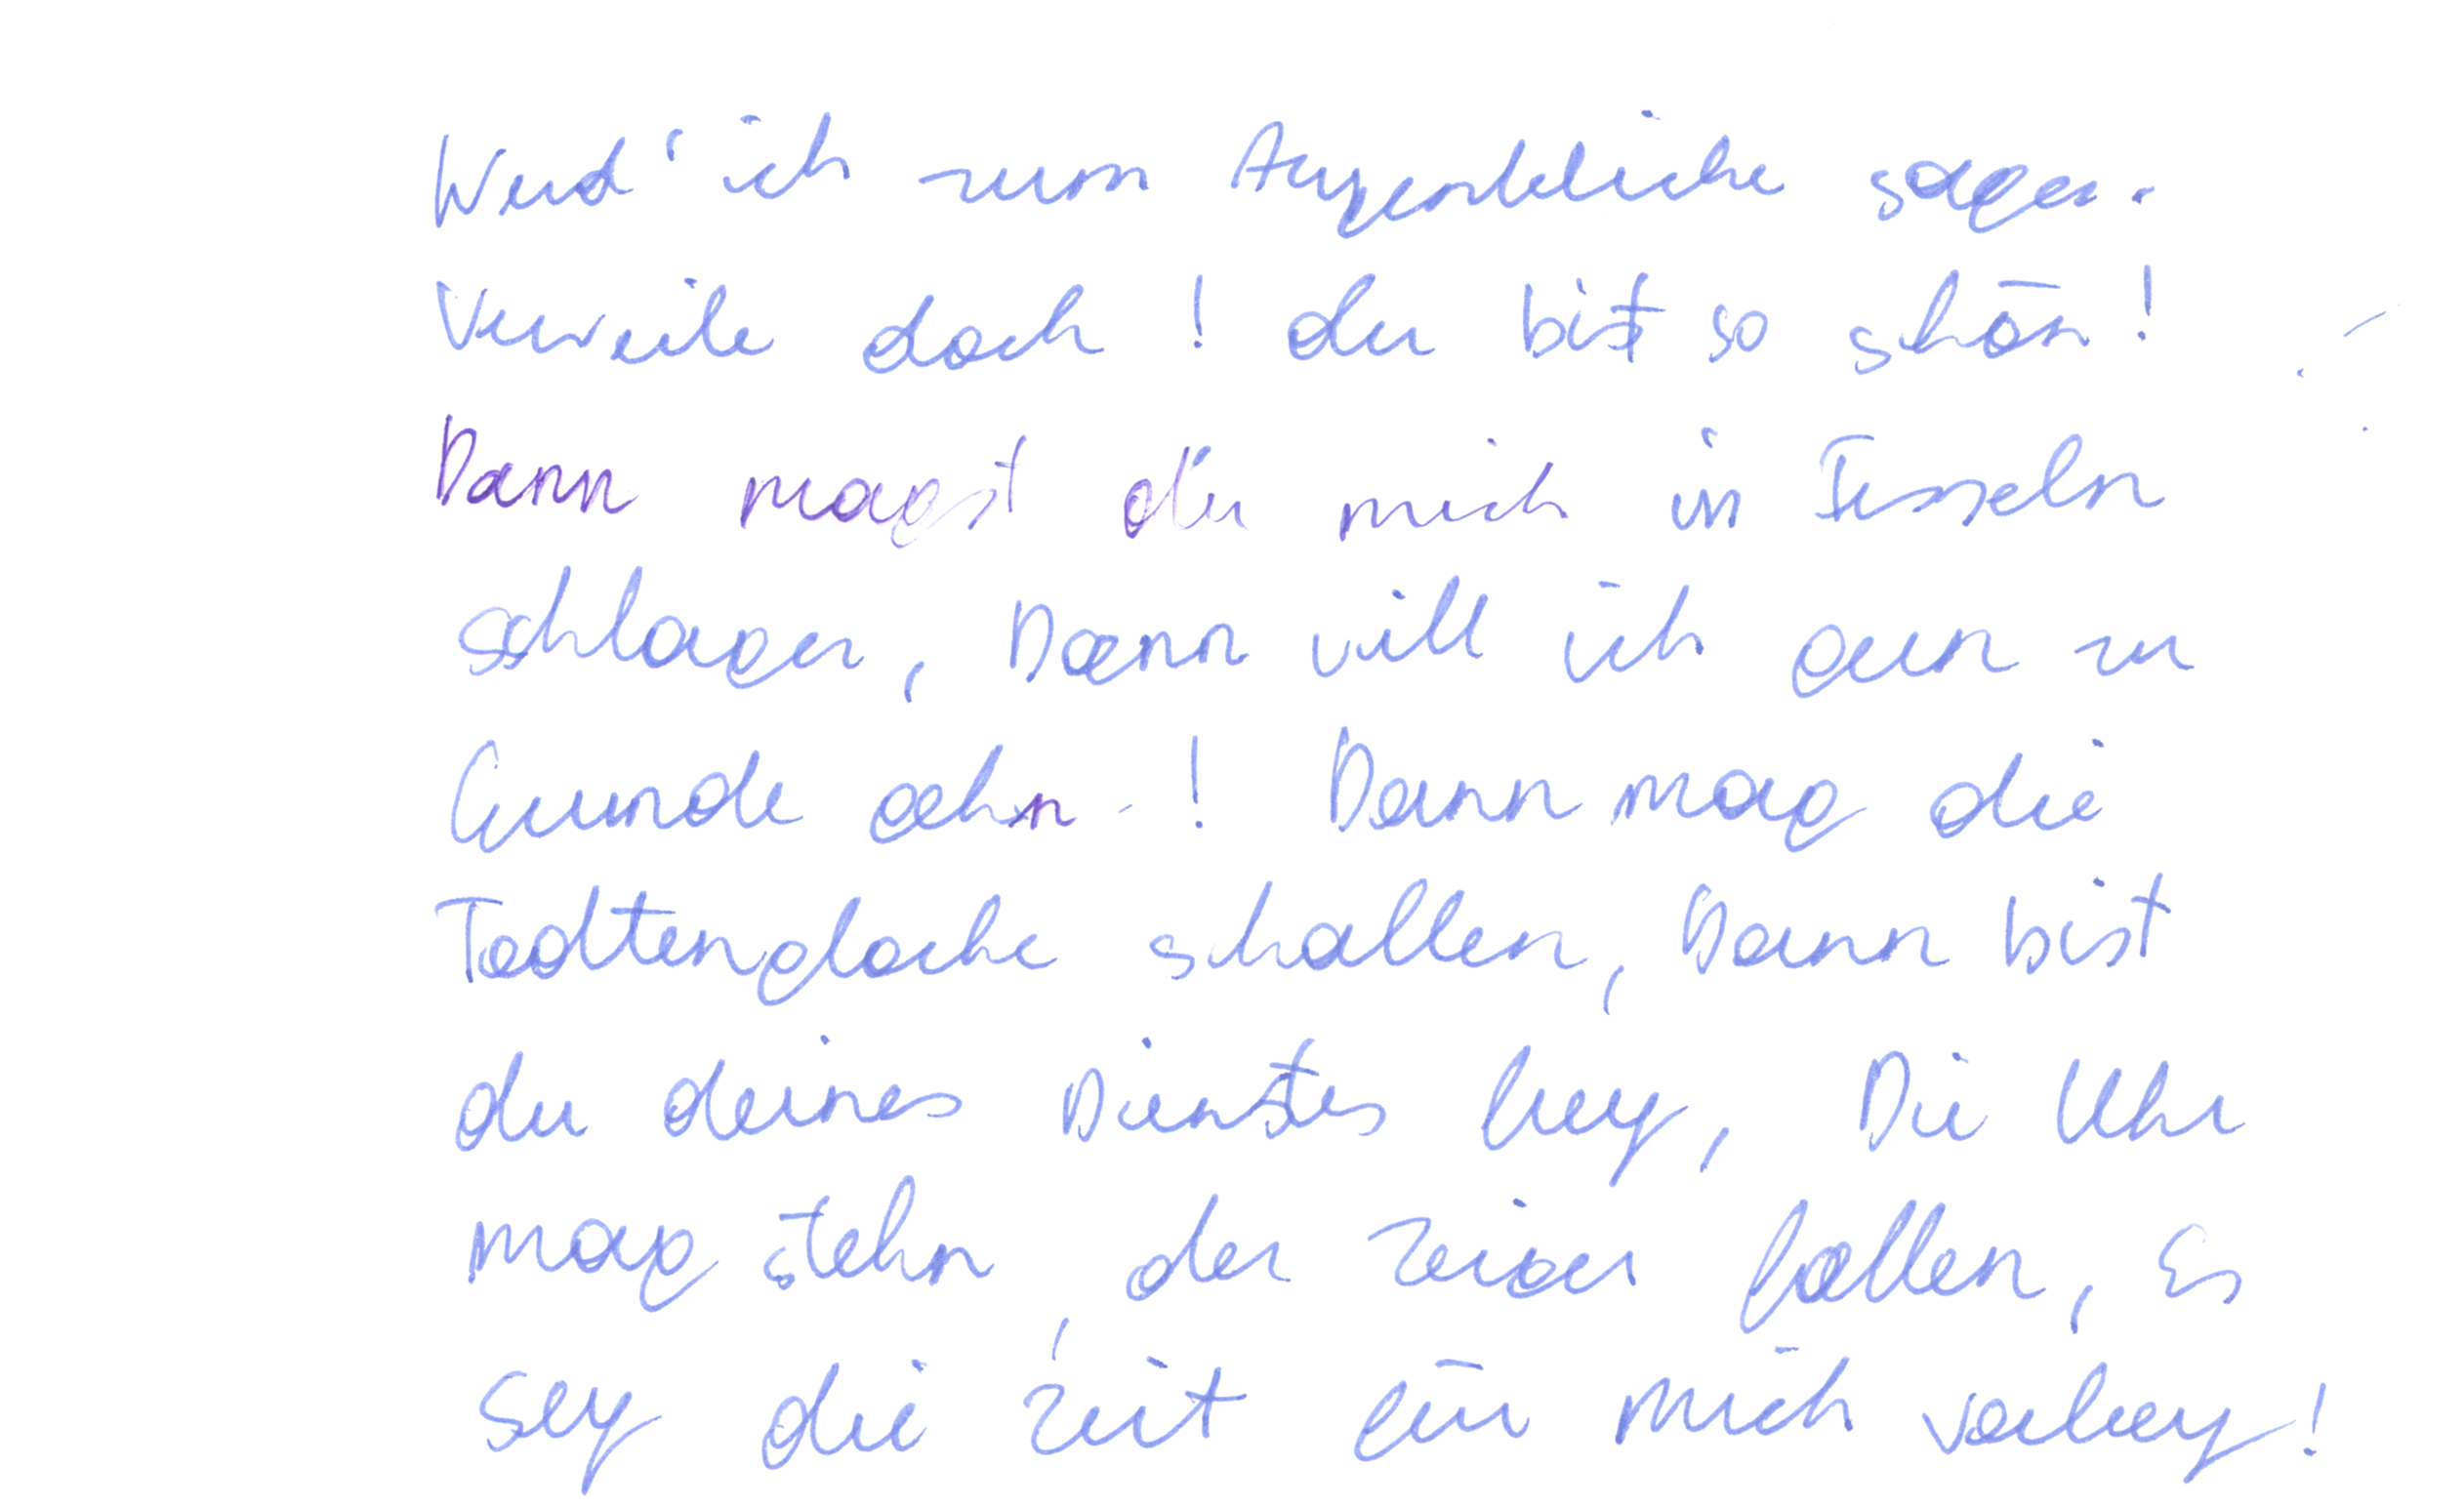 Werd' ich zum Augenblicke sagen.
Verweile doch! du bist so schön!
Dann magst du mich in Fesseln
schlagen, Dann will ich gern zu
Grunde gehn-! Dann mag die
Todtenglocke schallen, Dann bist
du deines Dienstes frey, Die Uhr
mag stehn, der Zeiger fallen, Es
sey die Zeit für mich vorbey!